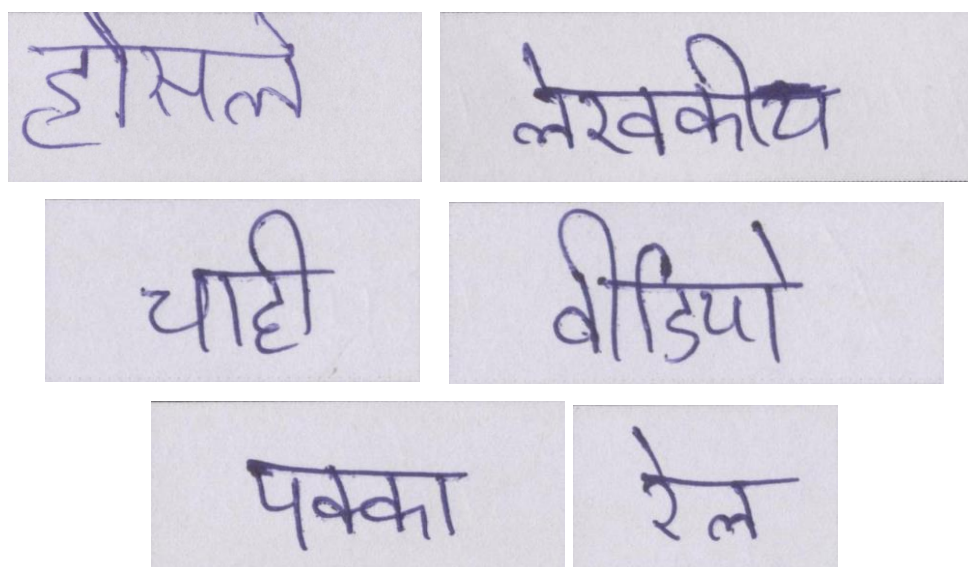 हौसले लेखकीय
चाही वीडियो
पक्का रेल